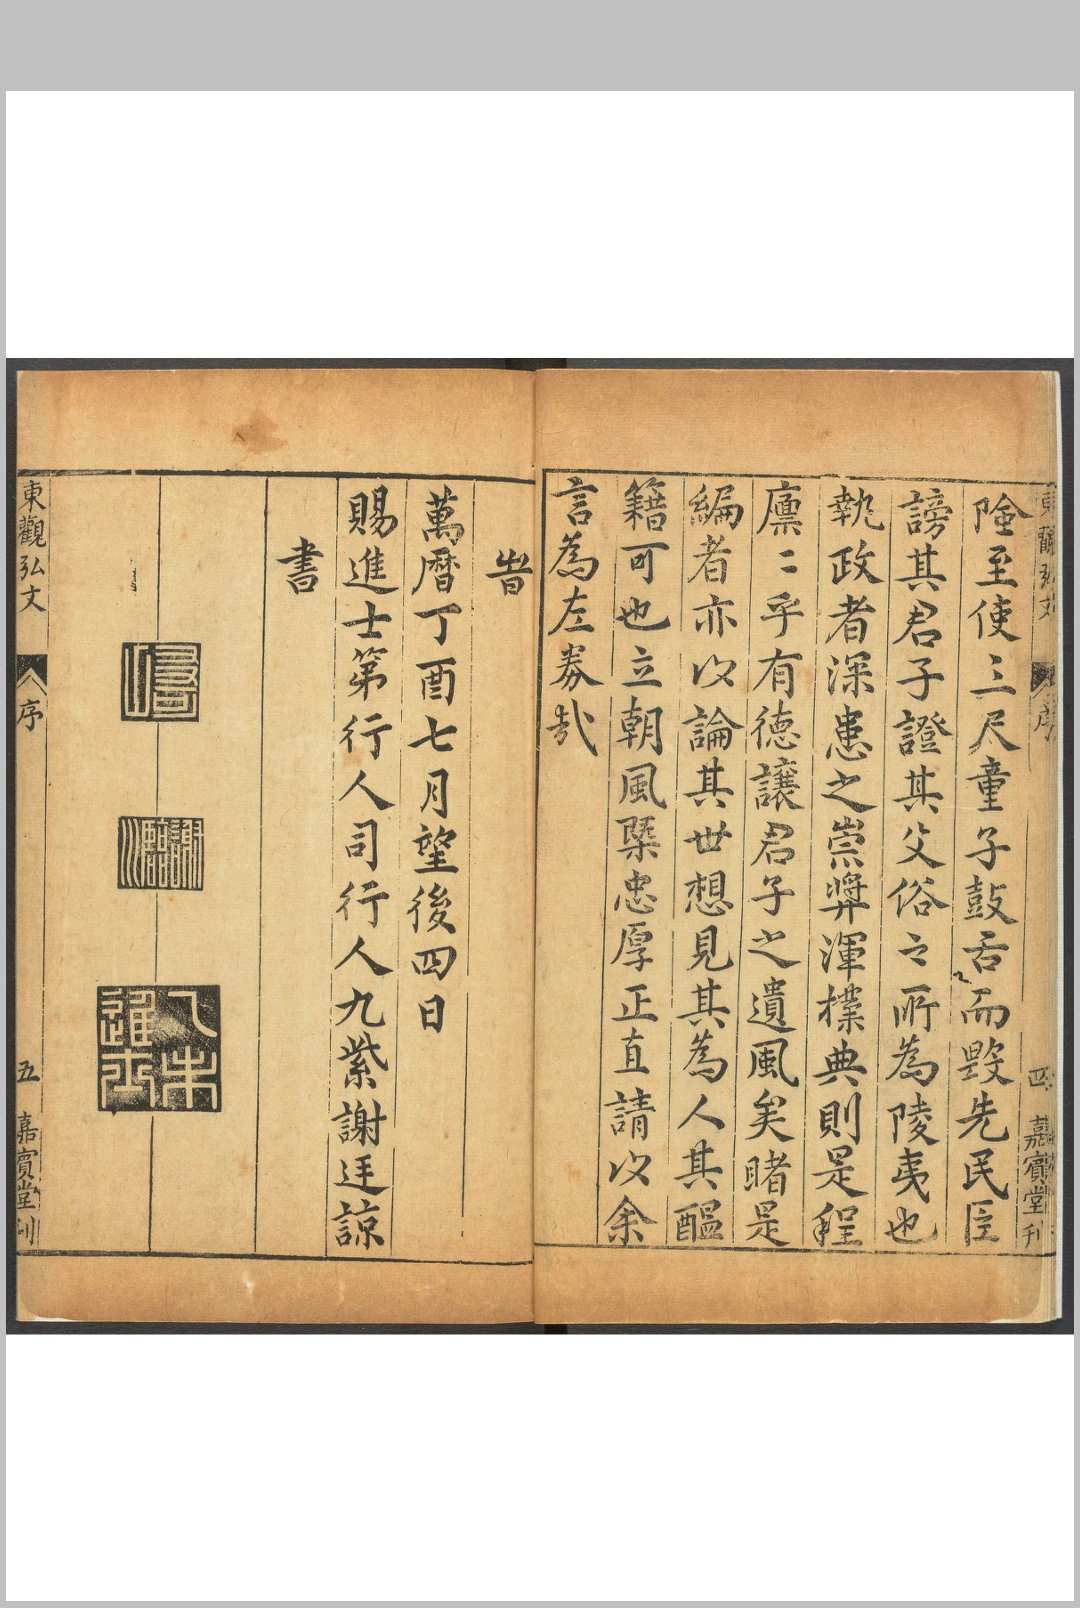 險至使三尺童子鼓舌而毀先民臣
謗其君子證其父俗之所為陵夷也
執政者深患之崇獎渾樸典則是程
廩〻乎有德讓君子之遺風矣睹是
編者亦以論其世想見其為人其醞
籍可也立朝風槩忠厚正直請以余
言為左券哉
旹
萬曆丁酉七月望後四日
賜進士第行人司行人九紫謝廷諒
書
東觀弘文
序
五
嘉賓堂刊
東觀弘文
序
四
嘉賓堂刊